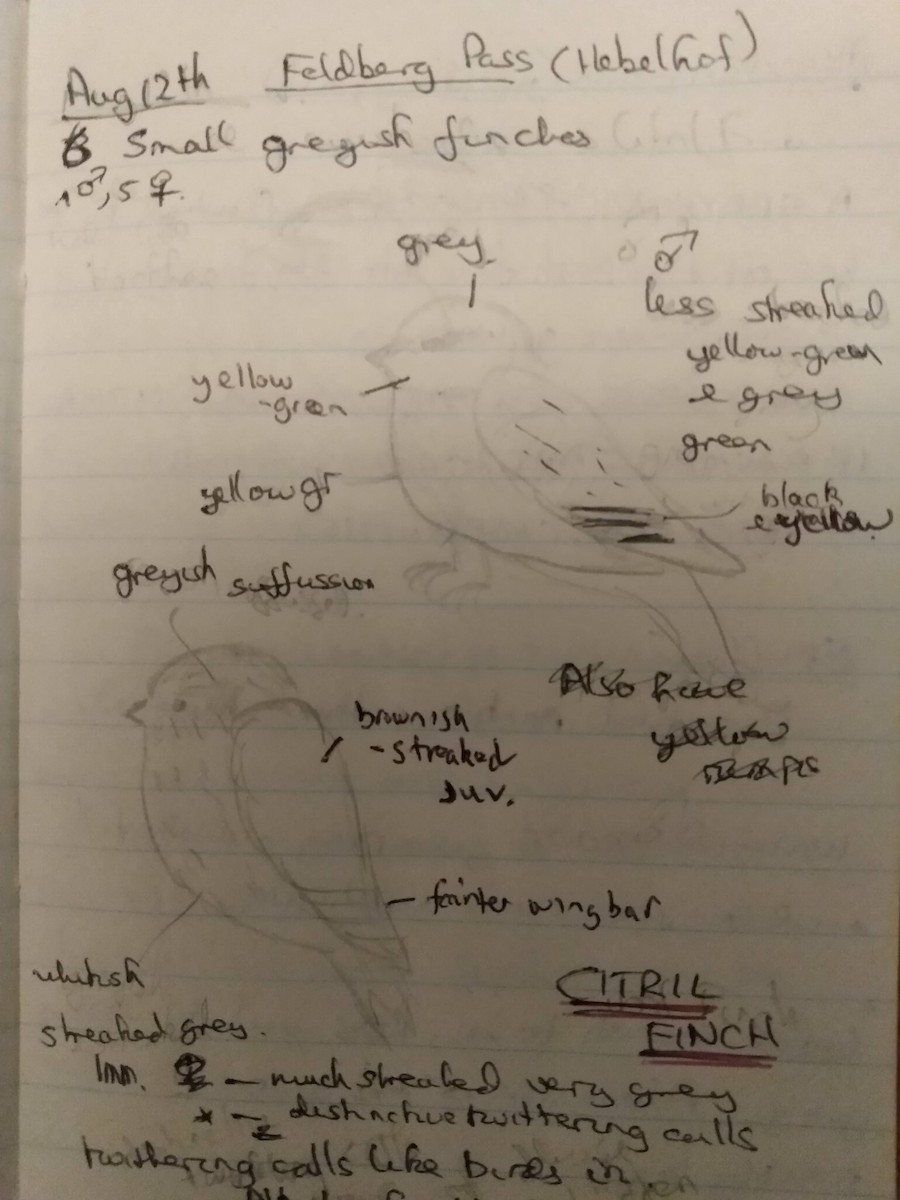 Aug 12th Feldberg Pass (Hebelhof)
6 Small greyish finches
1♂, 5 ♀.
grey.
♂
less streaked
yellow-green
& grey
green
yellow
-green
yellow gr
black
& yellow
greyish suffussion
Also have
yellow
brownish
-streaked
Juv.
- fainter wingbar
whitish
streaked grey.
CITRIL
FINCH
Imm. - much streaked very grey
* - distinctive twittering calls
twittering calls like birds in